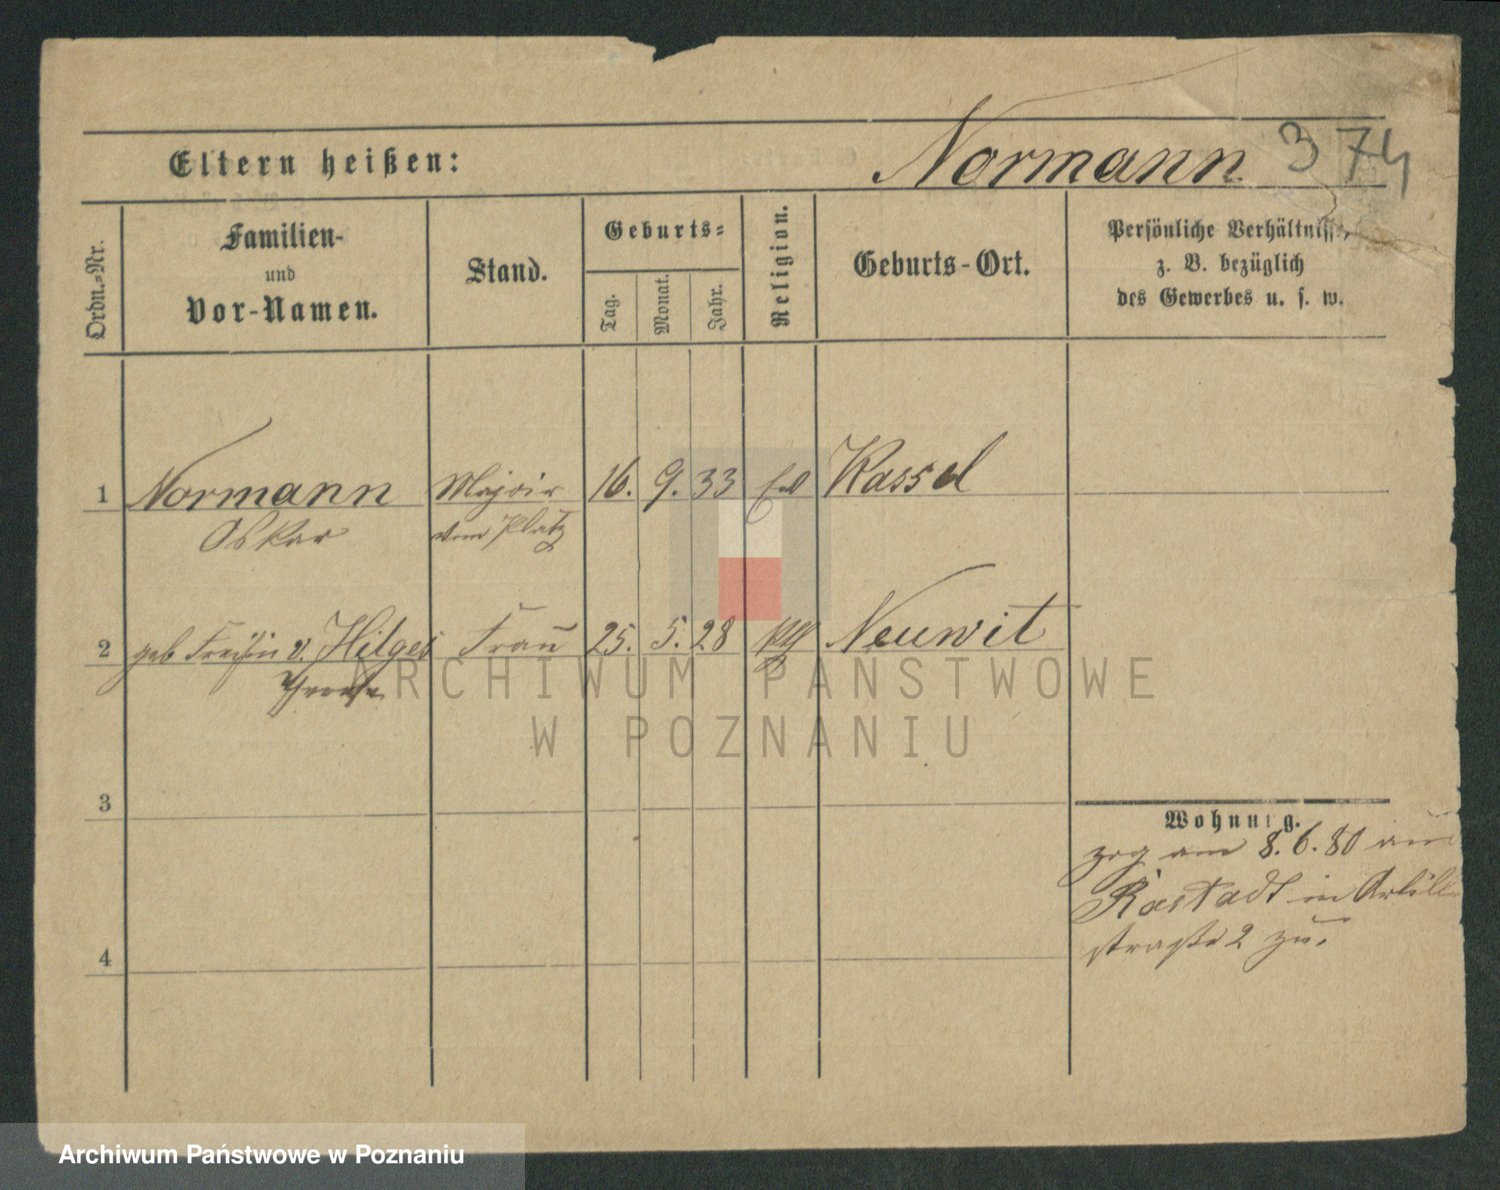 Eltern heißen:
Normann
3 74
Ordn.-Nr.
Familien-
und
Vor-Namen.
Stand.
Geburts-
Tag.
Monat.
Jahr.
Religion.
Geburts-Ort.
Persönliche Verhältnisse,
z. B. bezüglich
des Gewerbes u. s. w.
1 Normann Major 16. 9. 33 Kassel
Oskar vom Platz
2 geb Freiin v. Hilgers Frau 25. 5. 28 kth Neuwit
3
Wohnung.
zog am 8. 6. 80 aus
Rastadt in Artill
straße 2 zu.
4
ARCHIWUM PAŃSTWOWE
W POZNANIU
Archiwum Państwowe w Poznaniu